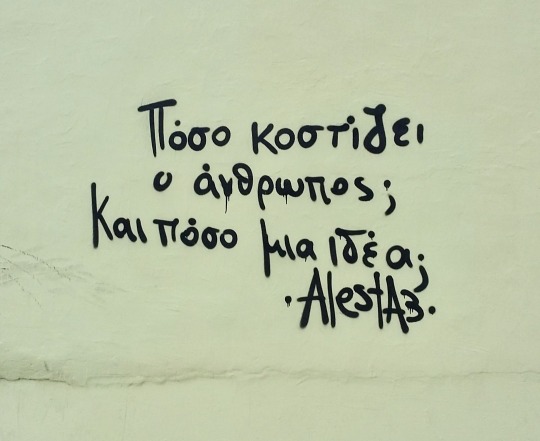 Πόσο κοστίζει
ο άνθρωπος;
Και πόσο μια ιδέα;
·AlestA3.